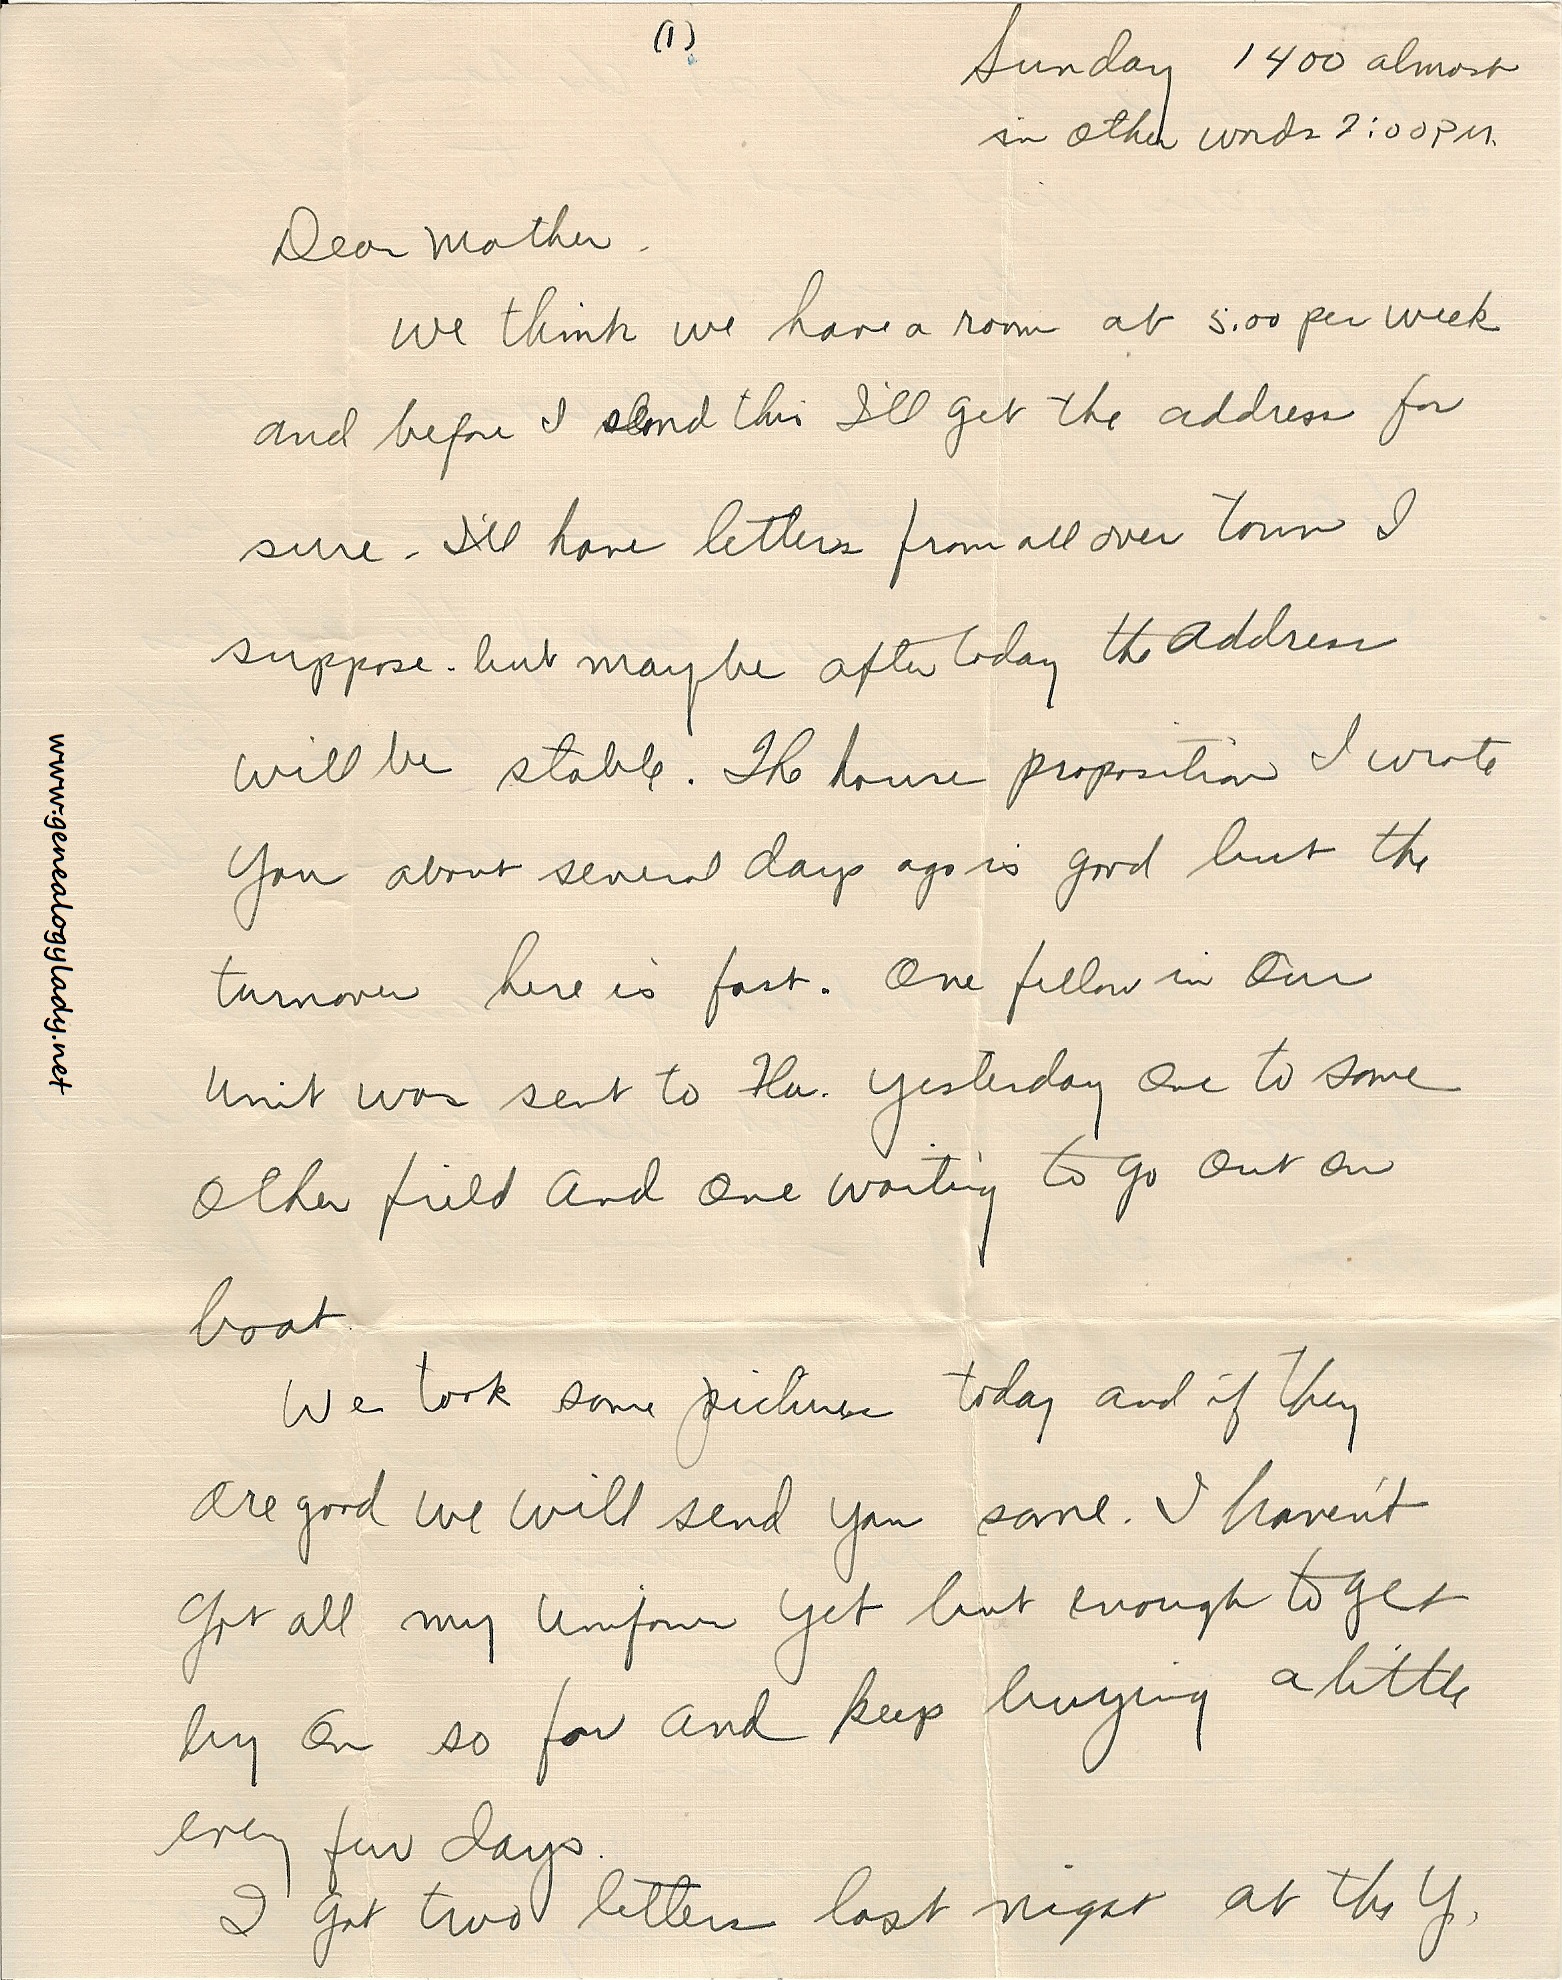 (1)
Sunday 1400 almost
in other words 2:00 P.M.
Dear Mother.
We think we have a room at 5.00 per week
and before I send this I'll get the address for
sure - I'll have letters from all over town I
suppose. but maybe after today the address
will be stable. The house proposition I wrote
you about several days ago is good but the
turnover here is fast. One fellow in our
unit was sent to Fla. yesterday one to some
other field and one waiting to go out on
boat.
We took some pictures today and if they
are good we will send you some. I haven't
got all my uniform yet but enough to get
by on so far and keep buying a little
every few days.
I got two letters last night at the Y.
www.genealogylady.net